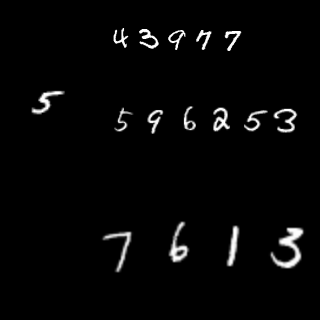 43977
5
596253
7613